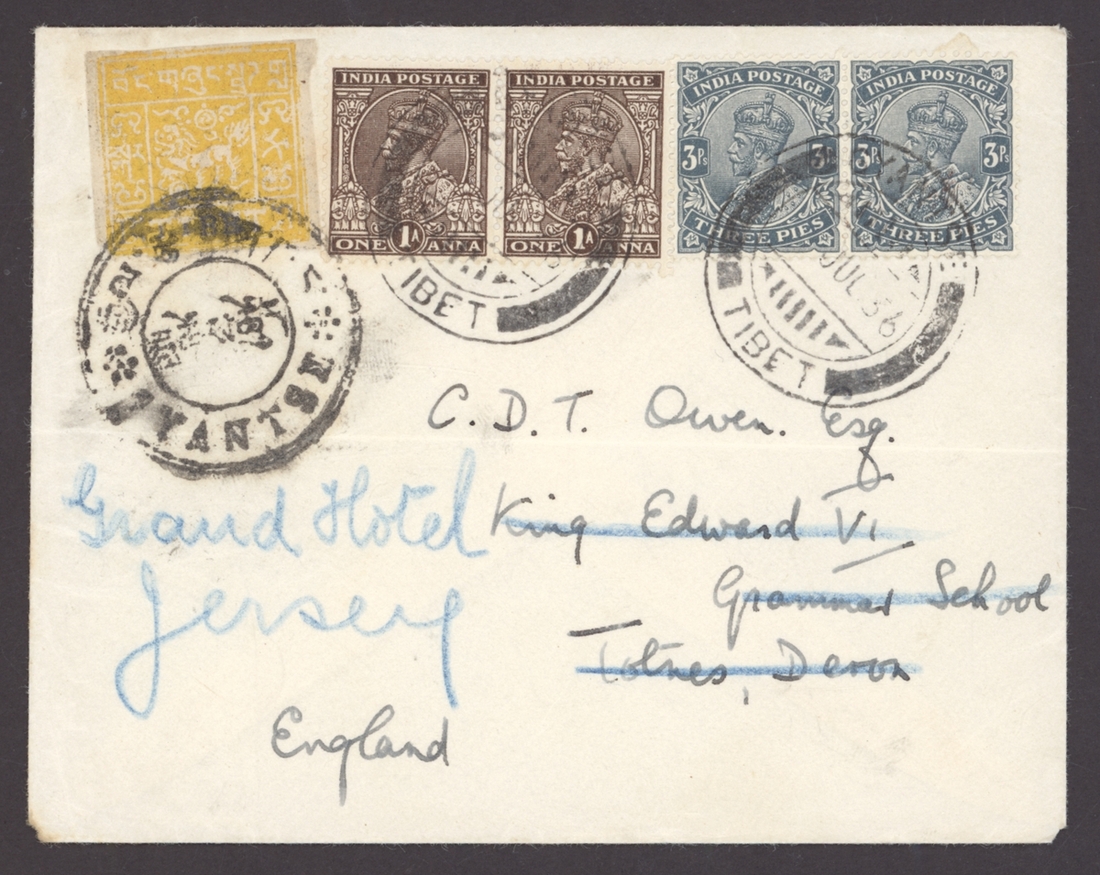 INDIA POSTAGE
1A
ONE ANNA
INDIA POSTAGE
1A
ONE ANNA
INDIA POSTAGE
3Ps
3Ps
THREE PIES
INDIA POSTAGE
3Ps
3Ps
THREE PIES
TIBET
JUL.36
TIBET
GYANTSE
C. D. T. Owen. Esq.
King Edward VI
Grammar School
Totnes, Devon
Grand Hotel
Jersey
England